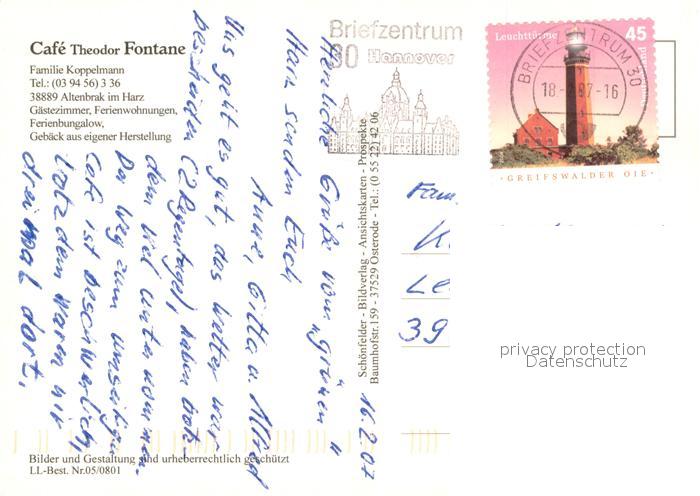 Café Theodor Fontane
Familie Koppelmann
Tel.: (03 94 56) 3 36
38889 Altenbrak im Harz
Gästezimmer, Ferienwohnungen,
Ferienbungalow,
Gebäck aus eigener Herstellung
Briefzentrum
30 Hannover
BRIEFZENTRUM 30
18- -07-16
Leuchttürme 45
GREIFSWALDER OIE
16.2.07
Herzliche Grüße vom "grünen"
Harz senden Euch
Anne, Gitta u. Alfred
Uns geht es gut, das Wetter war
bescheiden (2 Regentage), haben trotz
dem viel unternommen.
Der Weg zum umseitigen
Cafe ist beschwerlich,
trotzdem waren wir
dreimal dort.
Schönfelder - Bildverlag - Ansichtskarten - Prospekte
Baumhofstr.159 - 37529 Osterode - Tel.: (0 55 22) 42 06
Fam.
K
Le
39
privacy protection
Datenschutz
Bilder und Gestaltung sind urheberrechtlich geschützt
LL-Best. Nr.05/0801